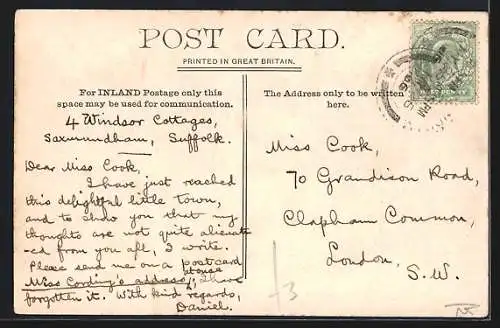 POST CARD.
PRINTED IN GREAT BRITAIN.
For INLAND Postage only this
space may be used for communication.
The Address only to be written
here.
4 Windsor Cottages,
Saxmundham, Suffolk.
Dear Miss Cook,
I have just reached
this delightful little town,
and to show you that my
thoughts are not quite alienat-
-ed from you all, I write.
Please send me on a postcard
Miss Cording's address, I have
forgotten it. With kind regards,
Daniel.
Miss Cook,
70 Grandison Road,
Clapham Common,
London,
S.W.
3